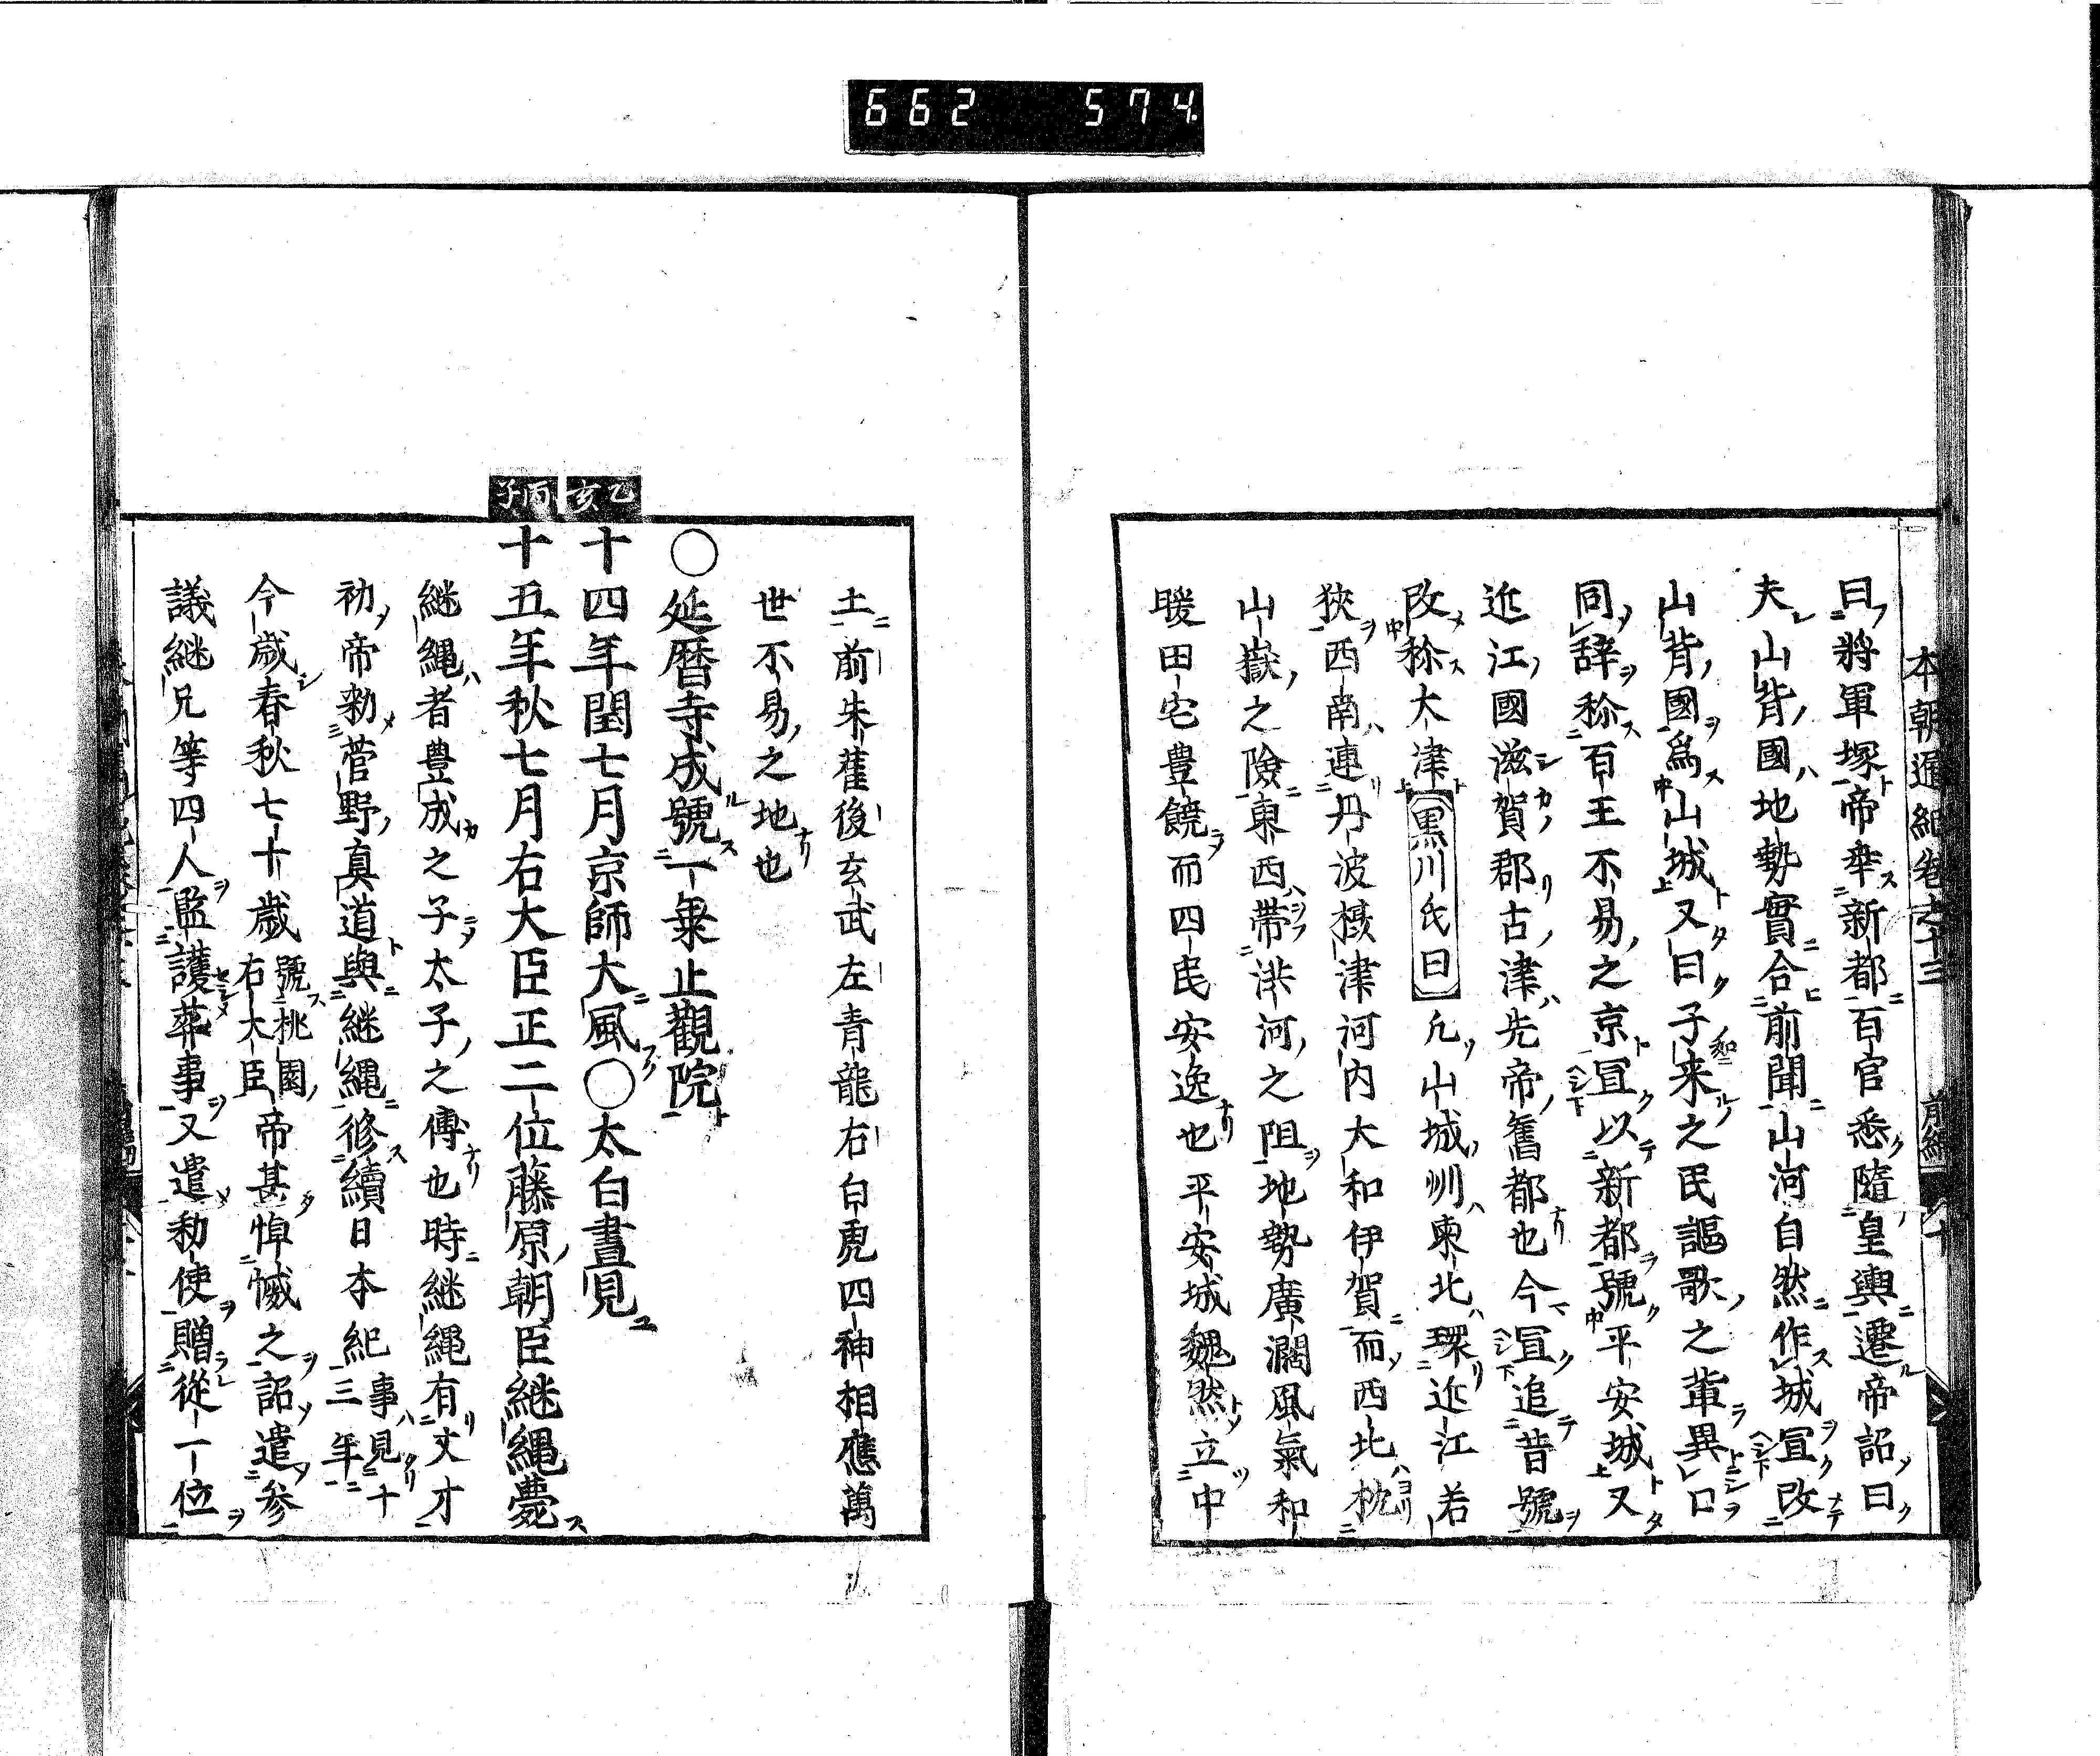 662 574
本朝通紀卷之十三 前編 十
曰將軍塚帝幸新都百官悉隨皇輿遷帝詔曰
夫山背國地勢實合前聞山河自然作城冝改
山背國爲山城又曰子来之民謳歌之輩異口
同辞称百王不易之京冝以新都號平安城又
近江國滋賀郡古津先帝舊都也今冝追昔號
改称大津黒川氏曰凢山城州東北環近江若
狹西南連丹波摂津河内大和伊賀而西北枕
山嶽之險東西帶洪河之阻地勢廣濶風氣和
暖田宅豊饒而四民安逸也平安城魏然立中
土前朱雀後玄武左青龍右白虎四神相應萬
世不易之地也
〇延暦寺成號一乗止觀院
乙亥
十四年閏七月京師大風〇太白晝見
丙子
十五年秋七月右大臣正二位藤原朝臣継縄薨
継縄者豊成之子太子之傅也時継縄有文才
初帝勅菅野真道與継縄修續日本紀事見十三年
今歳春秋七十歳號桃園右大臣帝甚悼惐之詔遣参
議継兄等四人監護葬事又遣勅使贈從一位